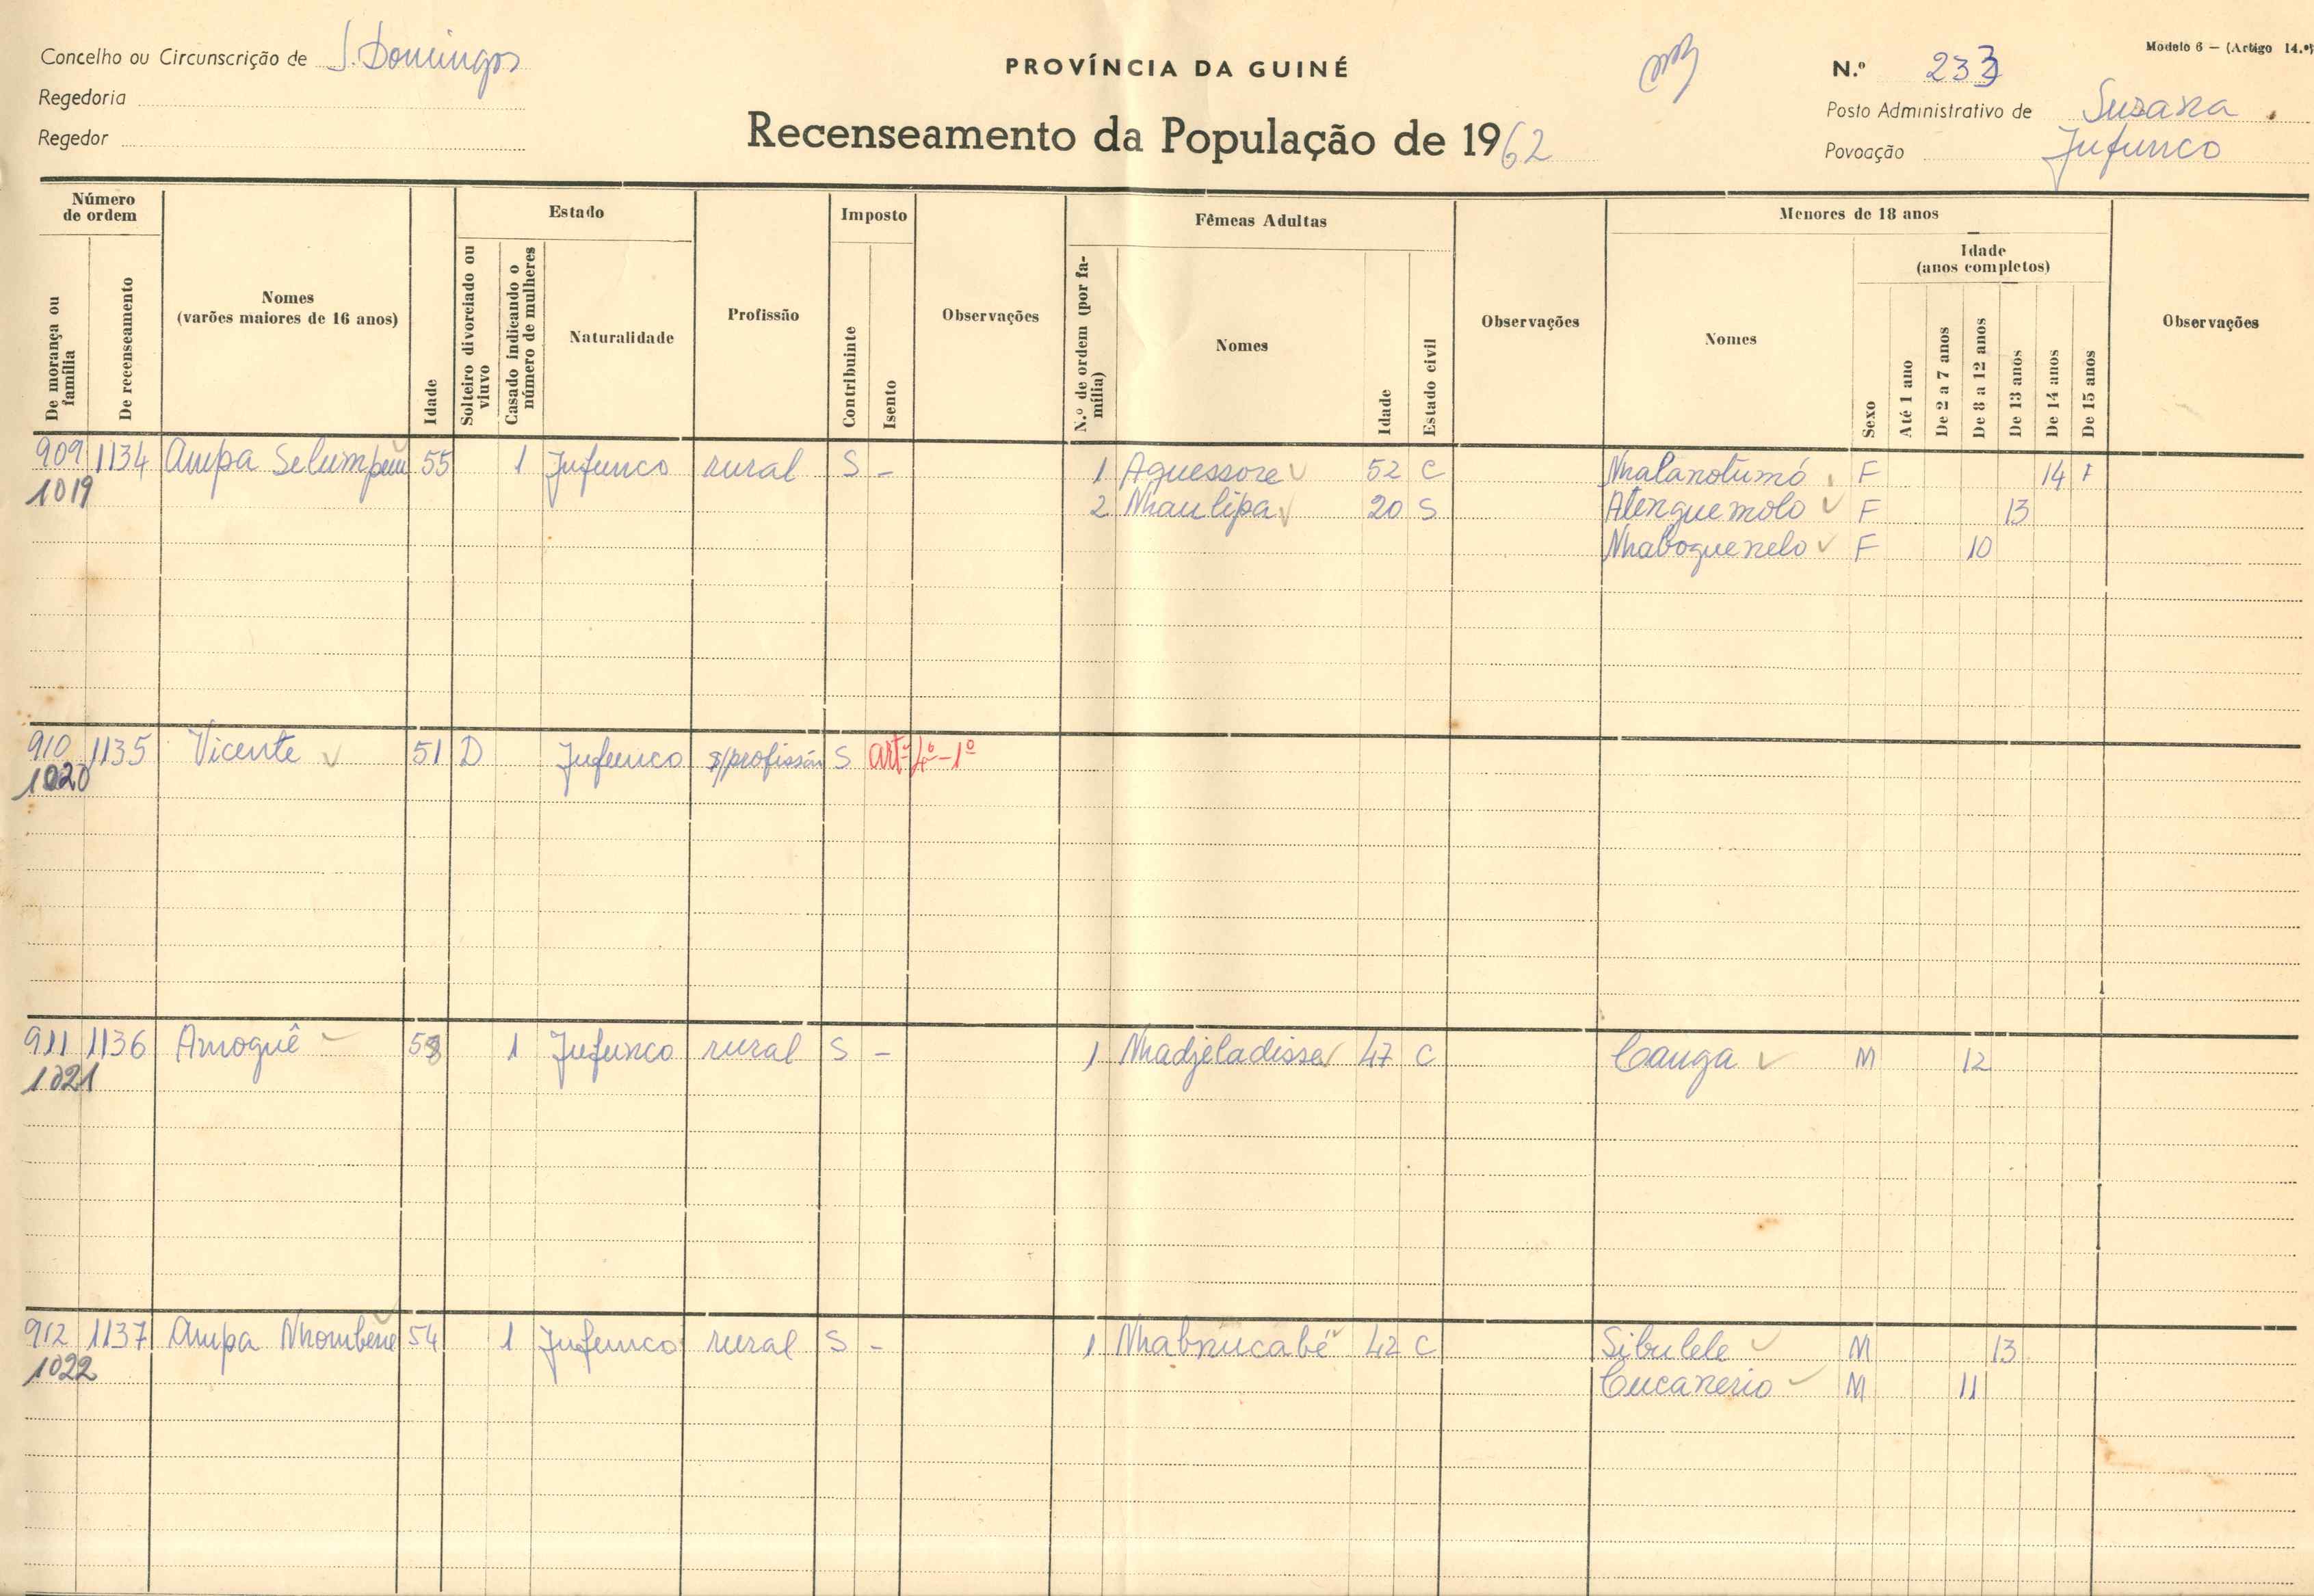 Concelho ou Circunscrição de S. Domingos
Regedoria
Regedor
PROVÍNCIA DA GUINÉ
Recenseamento da População de 1962
Modelo 6 — (Artigo 14.º)
N.º 233
Posto Administrativo de Susana
Povoação Jufunco
Número de ordem
De morança ou família
De recenseamento
Nomes
(varões maiores de 16 anos)
Idade
Estado
Solteiro divorciado ou viuvo
Casado indicando o número de mulheres
Naturalidade
Profissão
Imposto
Contribuinte
Isento
Observações
Fêmeas Adultas
N.º de ordem (por família)
Nomes
Idade
Estado civil
Observações
Menores de 18 anos
Nomes
Sexo
Idade
(anos completos)
Até 1 ano
De 2 a 7 anos
De 8 a 12 anos
De 13 anos
De 14 anos
De 15 anos
Observações
909 1134 Ampa Selumpem 55 1 Jufunco rural S - 1 Aguessore 52 C Nhalanotumó F 14
1019 2 Nhaulipa 20 S Alenguemolo F 13
Nhaboguenelo F 10
910 1135 Vicente 51 D Jufunco s/profissão S artº 4º-1º
1020
911 1136 Amoguê 1 Jufunco rural S - 1 Nhadjeladisse 47 C Cauga M 12
1021
912 1137 Ampa Nhombene 54 1 Jufunco rural S - 1 Nhabnucabé 42 C Sibulele M 13
1022 Cucanerio M 11